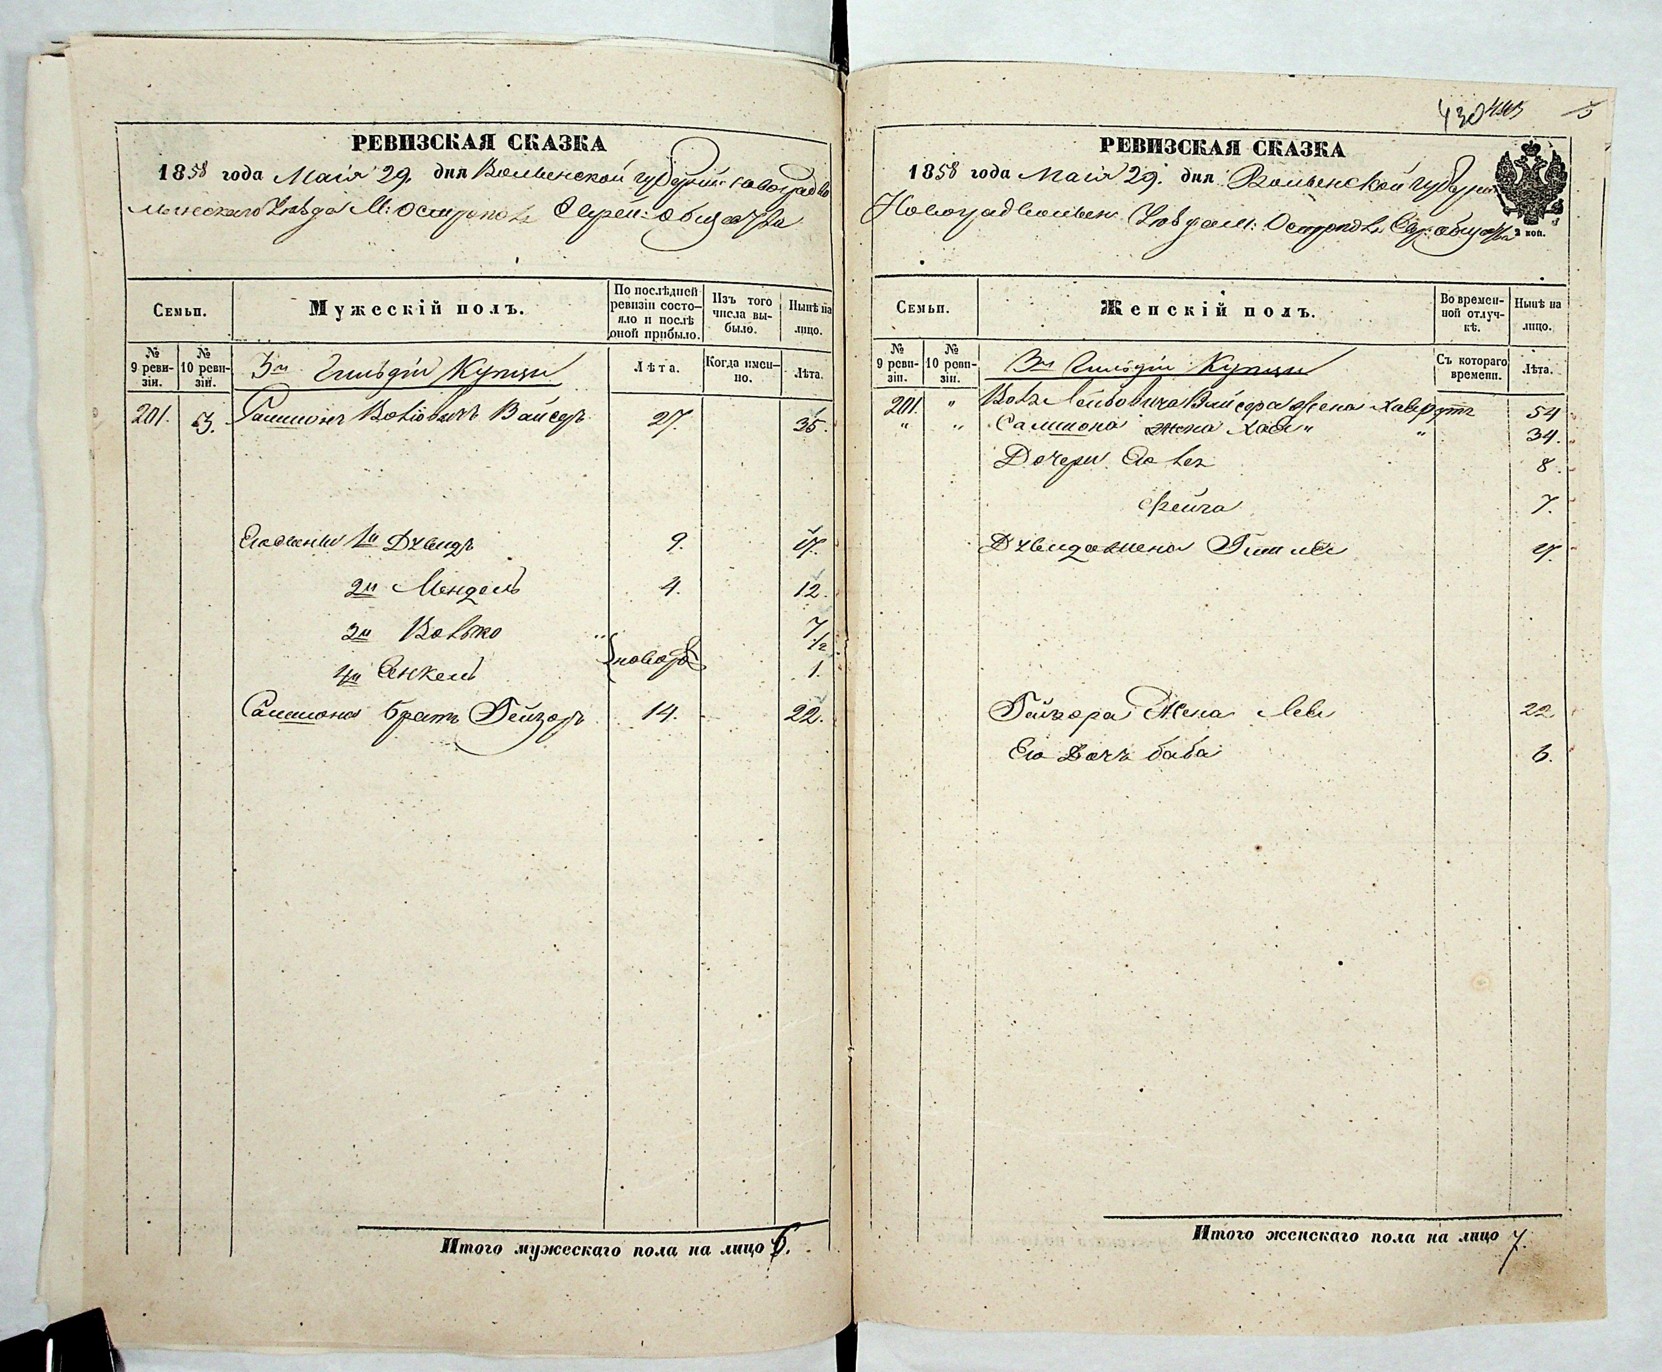 РЕВИЗСКАЯ СКАЗКА
1858 года Маія 29. дня Волынской губерніи Новоградво
лынскаго Уезда М: Острополя Еврей: Общества
Семьи.
Мужескій полъ.
По послѣдней ревизіи состояло и послѣ оной прибыло.
Изъ того числа выбыло.
Нынѣ на лицо.
№ 9 ревизіи.
№ 10 ревизіи.
3й Гильдіи Купцы
Лѣта.
Когда именно.
Лѣта.
201. 3. Самшонъ Вольовичъ Вайсеръ 27. 35.
Его сыны 1й Дувидъ 9. 17.
2й Мендель 4. 12.
3й Волько " 7 1/2
4й Янкель новорож 1.
Самшона братъ Гейзоръ 14. 22.
Итого мужескаго пола на лицо 6.
430 5
РЕВИЗСКАЯ СКАЗКА
1858 года Маія 29. дня Волынской губерніи
Новоградволын. Уезда М: Острополя Евр: общества
2 коп.
Семьи.
Женскій полъ.
Во временной отлучкѣ.
Нынѣ на лицо.
№ 9 ревизіи.
№ 10 ревизіи.
3й Гильдіи Купцы
Съ котораго времени.
Лѣта.
201. " Лейбовича Вайсера Жена 54
" " Самшона жена Хая " " 34.
Дочери Его 8.
Фейга 7.
Дувида жена 17.
Гейзора Жена 22
Его Дочь баба 6.
Итого женскаго пола на лицо 7.